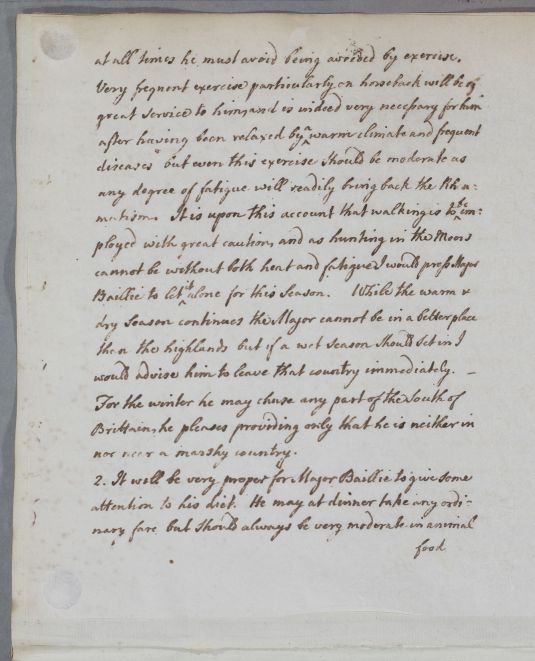 at all times he must avoid being avoided by exercise.
Very frequent exercise particularly on horseback will be of
great service to him, and is indeed very necessary for him
after having been relaxed by a warm climate and frequent
diseases but even this exercise should be moderate as
any degree of fatigue will readily bring back the Rheu-
matism. It is upon this account that walking is to be em-
ployed with great caution, and as hunting in the Moors
cannot be without both heat and fatigue I would press Major
Baillie to let it alone for this Season. While the warm &
dry Season continues the Major cannot be in a better place
then the highlands but if a wet season should set in I
would advise him to leave that country immediately. –
For the winter he may chuse any part of the South of
Brittain, he pleases providing only that he is neither in
nor near a marshy country.
2. It will be very proper for Major Baillie to give some
attention to his diet. He may at dinner take any ordi-
nary fare but should always be very moderate in animal
food